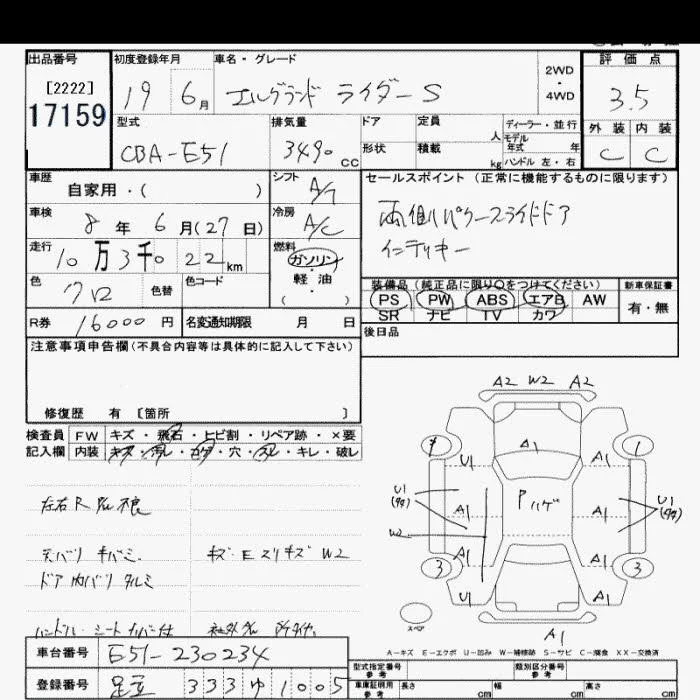 出品番号
[2222]
17159
初度登録年月
19 6月
車名・グレード
エルグランド ライダーS
2WD
・
4WD
評価点
3.5
外装 内装
C C
型式
CBA-E51
排気量
3490 cc
ドア
定員
人
形状
積載
kg
ディーラー・並行
モデル
年式 年
ハンドル 左・右
車歴
自家用・( )
シフト
A/T
セールスポイント (正常に機能するものに限ります)
両側パワースライドドア
インテリキー
車検
8年 6月(27日)
冷房
A/C
走行
10万3千022km
燃料
ガソリン
・
軽油
( )
色
クロ
色替
色コード
装備品 (純正品に限り○をつけてください)
PS PW ABS エアB AW
SR ナビ TV カワ
新車保証書
有・無
R券 16000円
名変通知期限 月 日
後日品
注意事項申告欄(不具合内容等は具体的に記入して下さい)
修復歴 有 [箇所 ]
検査員
記入欄
FW キズ・飛石・ヒビ割・リペア跡・×要
内装 キズ・汚レ・コゲ・穴・スレ・キレ・破レ
天バリ キバミ
キズ・Eスリキズ W2
ドア内バリ タルミ
A2 W2 A2
A1
1
U1
A1
U1
A1
Pハゲ
A1
U1
W2
A1
A1
3
3
U1
A1
A1
スペア
A-キズ E-エクボ U-凹み W-補修跡 S-サビ C-腐食 XX-交換済
車台番号
E51-230234
登録番号
足立 333 ゆ 1005
型式指定番号
参考
類別区分番号
参考
車庫証明用
参考
長さ cm
幅 cm
高さ cm